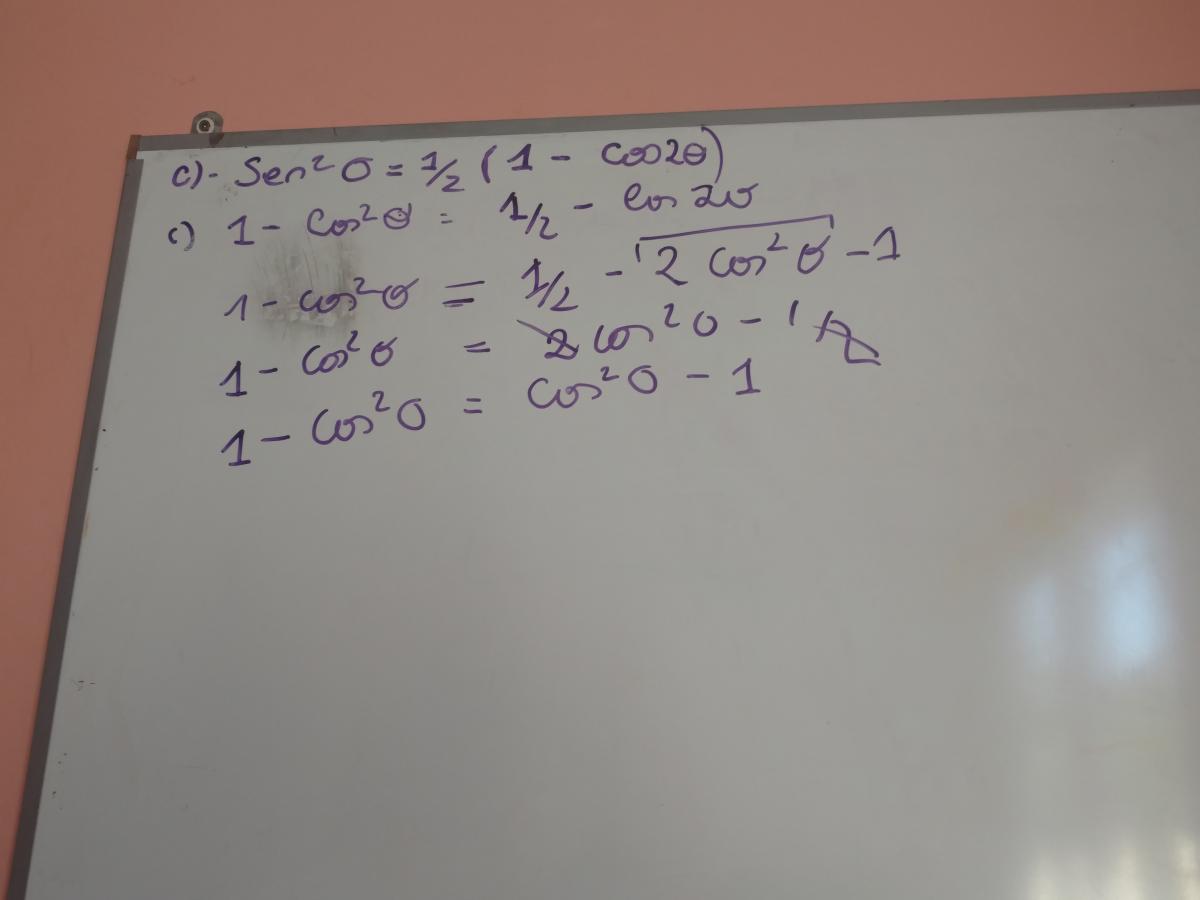 c)- Sen² θ = 1/2 (1 - cos2θ)
c) 1 - Cos²θ = 1/2 - cos 2θ
1 - cos²θ = 1/2 - 2 cos²θ - 1
1 - cos²θ = 2 cos²θ - 1/2
1 - cos²θ = cos²θ - 1